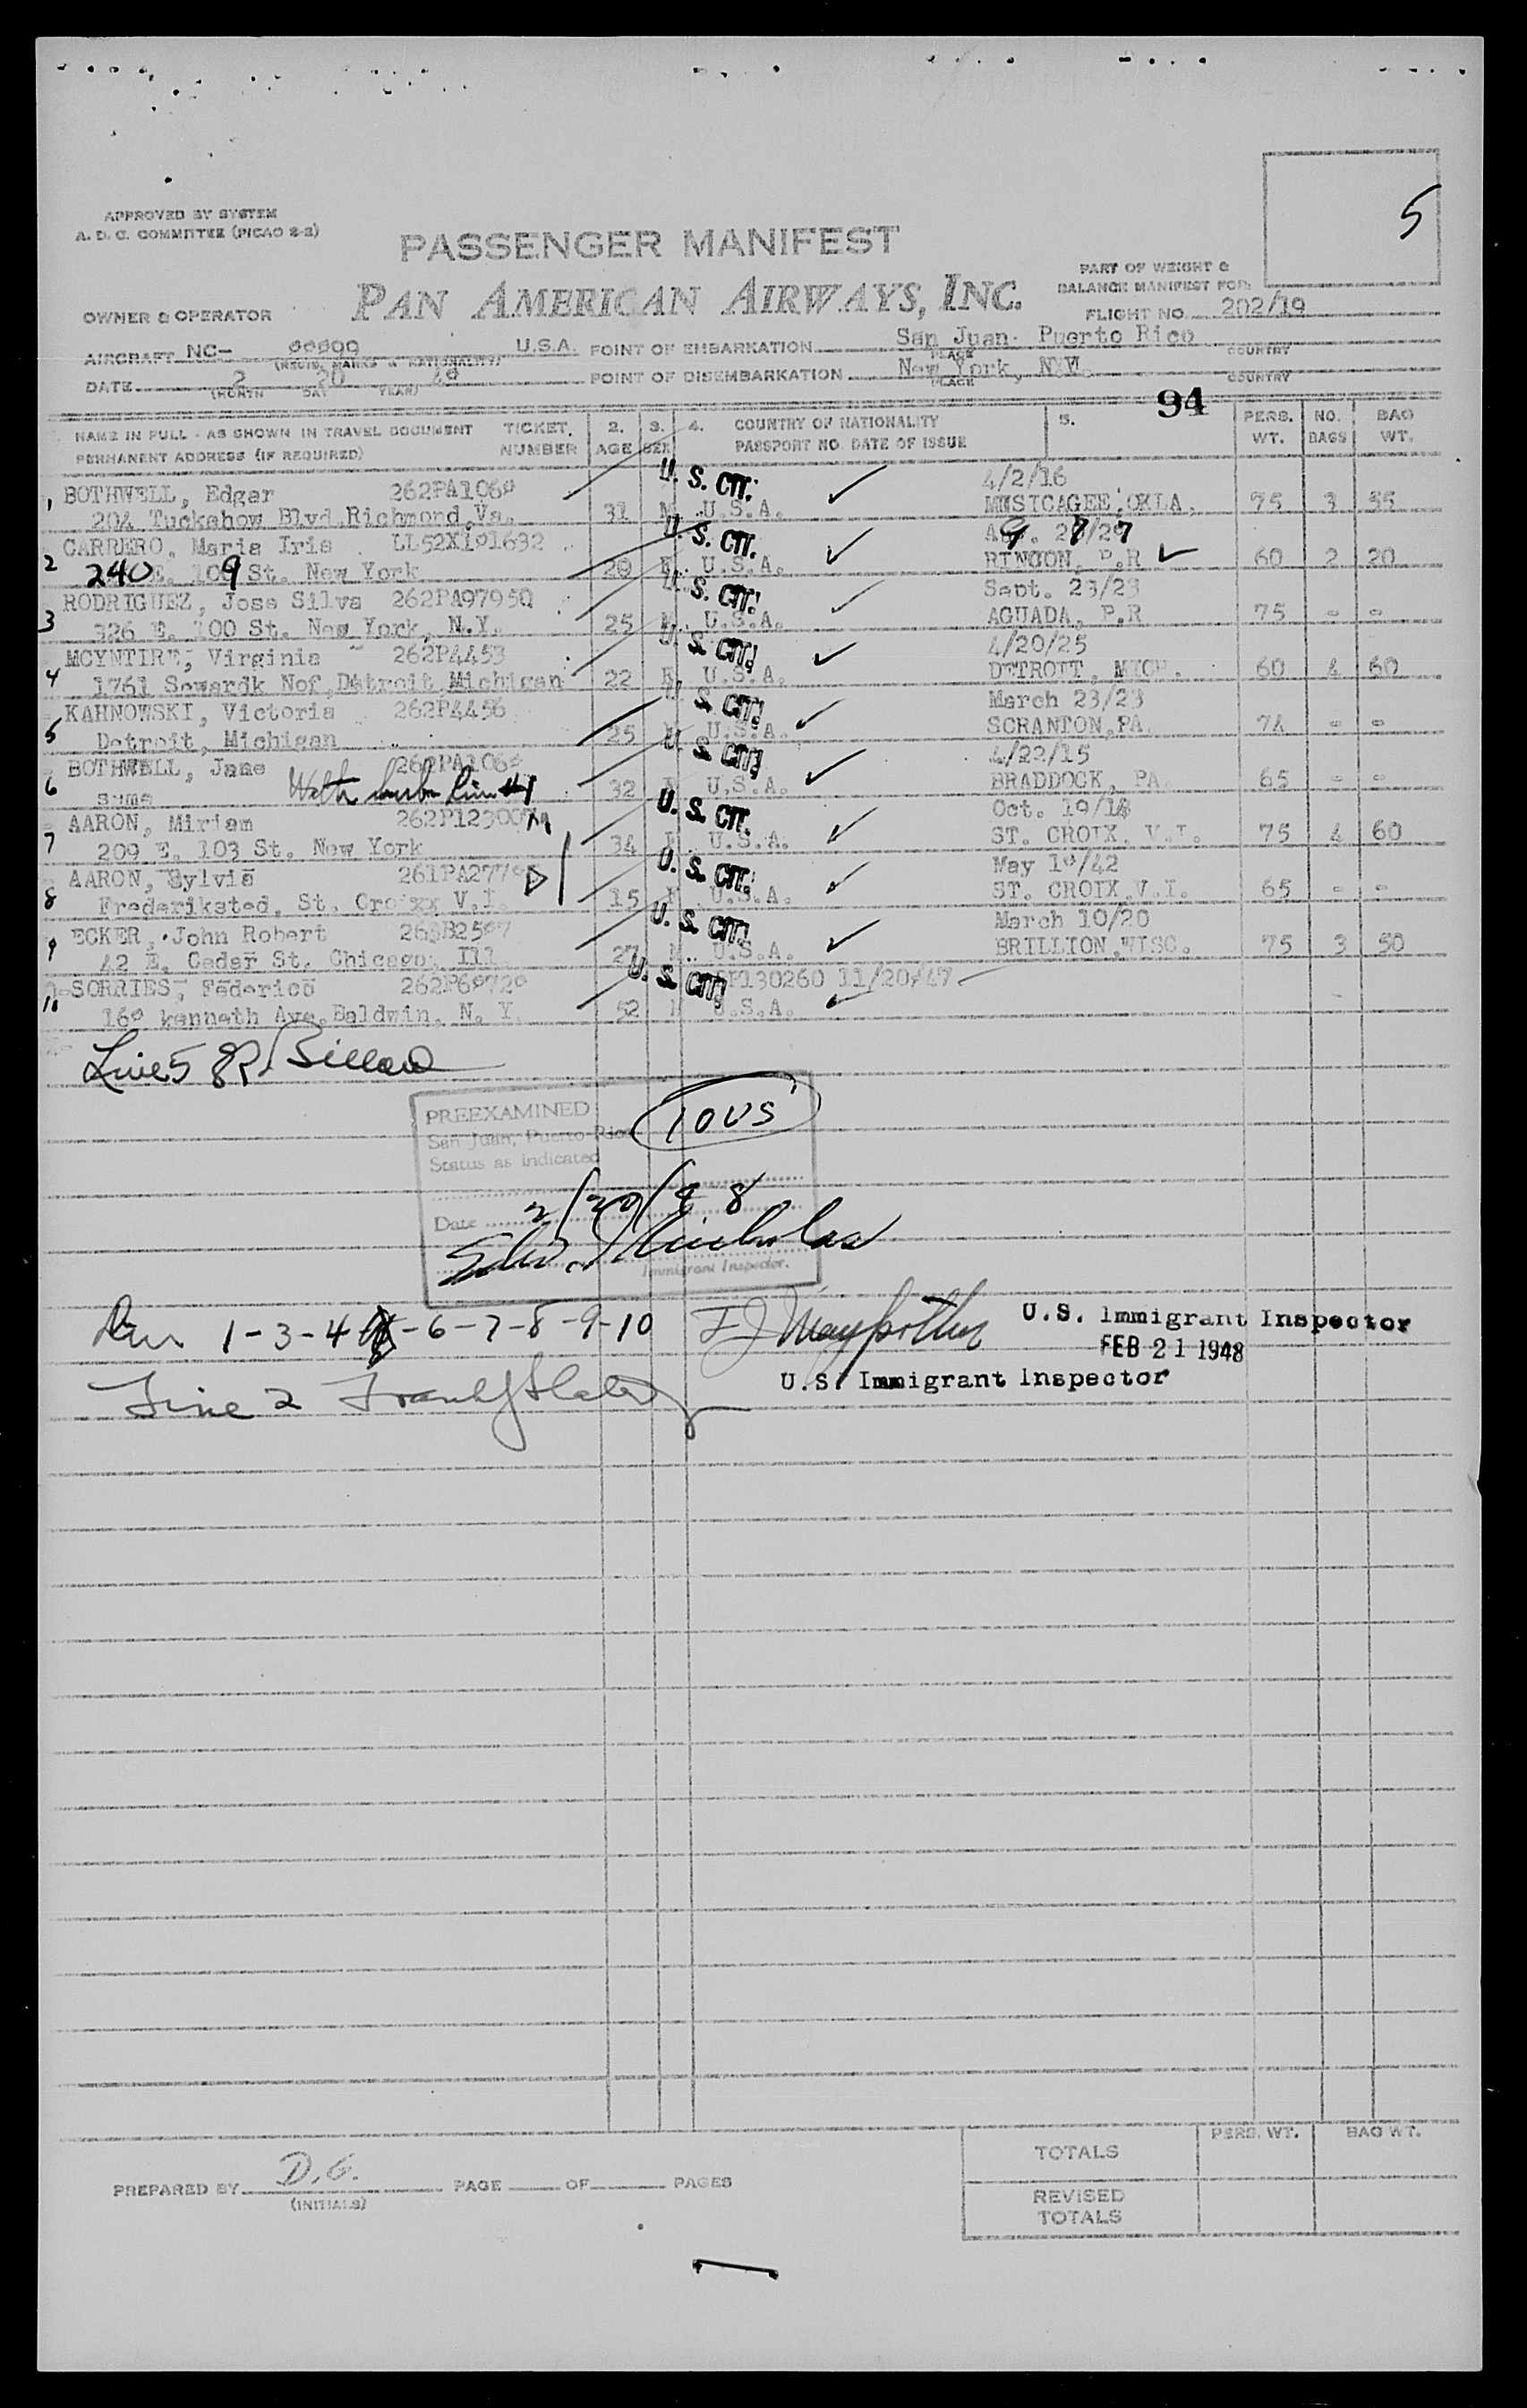 5
APPROVED BY SYSTEM
A. D. C. COMMITTEE (PICAO 2-2)
PASSENGER MANIFEST
PAN AMERICAN AIRWAYS, INC.
PART OF WEIGHT &
BALANCE MANIFEST FOR
FLIGHT NO. 202/19
OWNER & OPERATOR
AIRCRAFT NC- U.S.A. POINT OF EMBARKATION San Juan Puerto Rico
(REGIS. MARKS & NATIONALITY) PLACE COUNTRY
DATE 2 20 POINT OF DISEMBARKATION New York, N.Y.
(MONTH DAY YEAR) PLACE COUNTRY
94
NAME IN FULL - AS SHOWN IN TRAVEL DOCUMENT TICKET 2. 3. 4. COUNTRY OF NATIONALITY 5. PERS. NO. BAG
PERMANENT ADDRESS (IF REQUIRED) NUMBER AGE SEX PASSPORT NO. DATE OF ISSUE WT. BAGS WT.
U. S. CIT. 4/2/16
1 BOTHWELL, Edgar
204 Tuckahow Blvd Richmond, Va. 31 M U.S.A. MUSICAGEE, OKLA. 75 3 55
2 CARRERO, Maria Iris U. S. CIT.
240 E. 109 St. New York 20 F U.S.A. RINCON, P.R 60 2 20
3 RODRIGUEZ, Jose Silva 262PA97950 U. S. CIT. Sept. 23/23
326 E. 100 St. New York, N.Y. 25 M U.S.A. AGUADA, P.R 75 - -
4 MCYNTIRE, Virginia 262P4453 U. S. CIT. 4/20/25
1761 Sewardk Nof, Detroit Michigan 22 F U.S.A. DETROIT, MICH. 60 4 60
5 KAHNOWSKI, Victoria 262P4456 U. S. CIT. March 23/23
Detroit, Michigan 25 U.S.A. SCRANTON, PA. 74 - -
6 BOTHWELL, Jane U. S. CIT. 4/22/15
same 32 F U.S.A. BRADDOCK, PA. 65 - -
7 AARON, Miriam U. S. CIT. Oct. 19/13
209 E. 103 St. New York 34 F U.S.A. ST. CROIX, V.I. 75 4 60
8 AARON, Sylvia U. S. CIT. May
Frederiksted, St. Croix V.I. 15 F U.S.A. ST. CROIX, V.I. 65 - -
9 ECKER, John Robert U. S. CIT. March 10/20
42 E. Cedar St. Chicago, Ill 27 M U.S.A. BRILLION, WISC. 75 3 50
10 SORRIES, Federico U. S. CIT. 130260 11/20/47
kenneth Ave. Baldwin, N. Y. 52 M U.S.A.
Line 5
PREEXAMINED
San Juan, Puerto Rico
Status as indicated
10 US
Date 2/20/48
Nicholas
Immigrant Inspector.
1-3-4 -6-7-8-9-10 U.S. Immigrant Inspector
FEB 21 1948
U.S. Immigrant Inspector
Line 2
PREPARED BY D.G. PAGE OF PAGES
(INITIALS)
PERS. WT. BAG WT.
TOTALS
REVISED
TOTALS